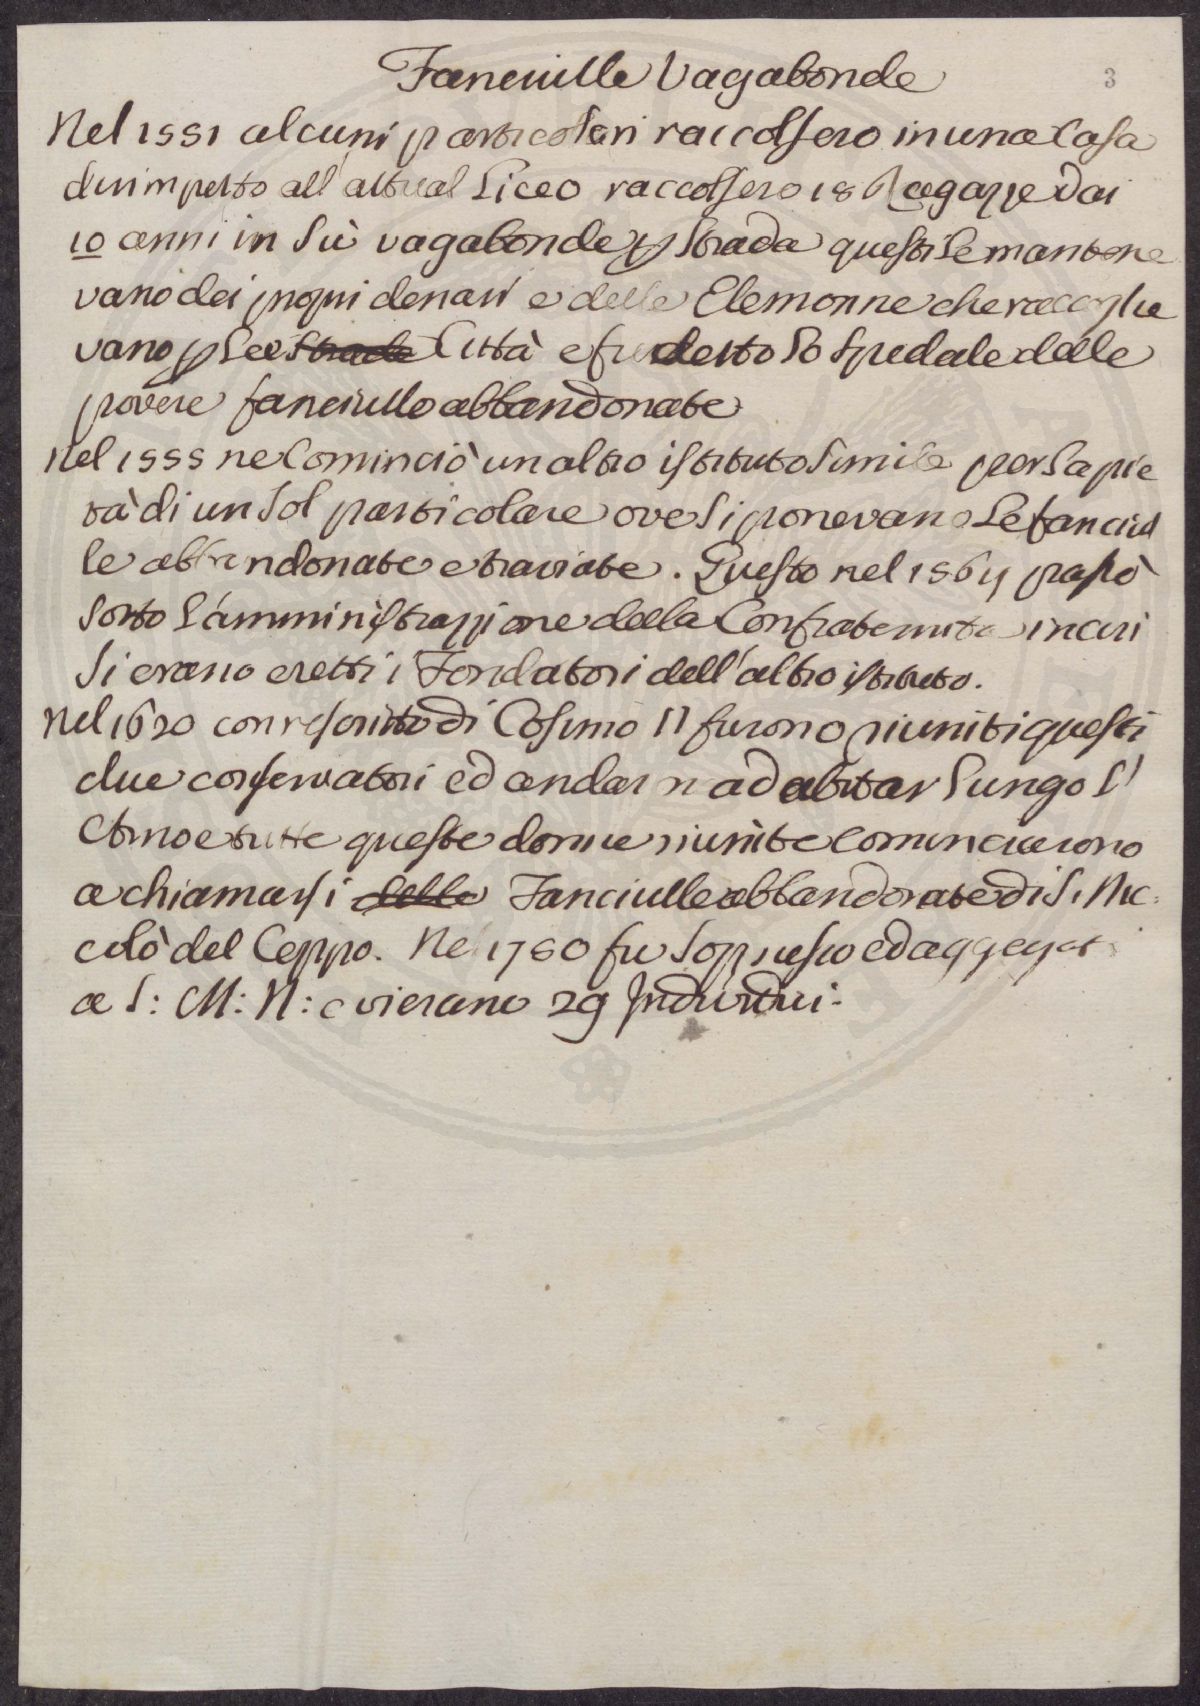 Fanciulle Vagabonde
3
Nel 1551 alcuni particolari raccolsero in una Casa
dirimpetto all'attual Liceo raccolsero 186 Ragazze dai
10 anni in sù vagabonde p strada questi le mantene
vano dei propri denari e delle Elemosine che raccoglie
vano p la Strade Città e fu detto lo Spedale delle
povere fanciulle abbandonate
Nel 1555 ne Cominciò un altro istituto simile per la pie
tà di un sol particolare ove si ponevano le fanciul
le abbandonate e traviate. Questo nel 1564 passò
sotto l'amministrazzione della Confraternita in cui
si erano eretti i Fondatori dell'altro istituto.
Nel 1620 con rescritto di Cosimo II furono riuniti questi
due conservatori ed andarn ad abitar lungo l'
Arno e tutte queste donne riunite cominciarono
a chiamarsi delle Fanciulle abbandonate di S. Nic:
colò del Ceppo. Nel 1780 fu soppresso ed aggregat
a S: M: N: e vierano 29 Individui.